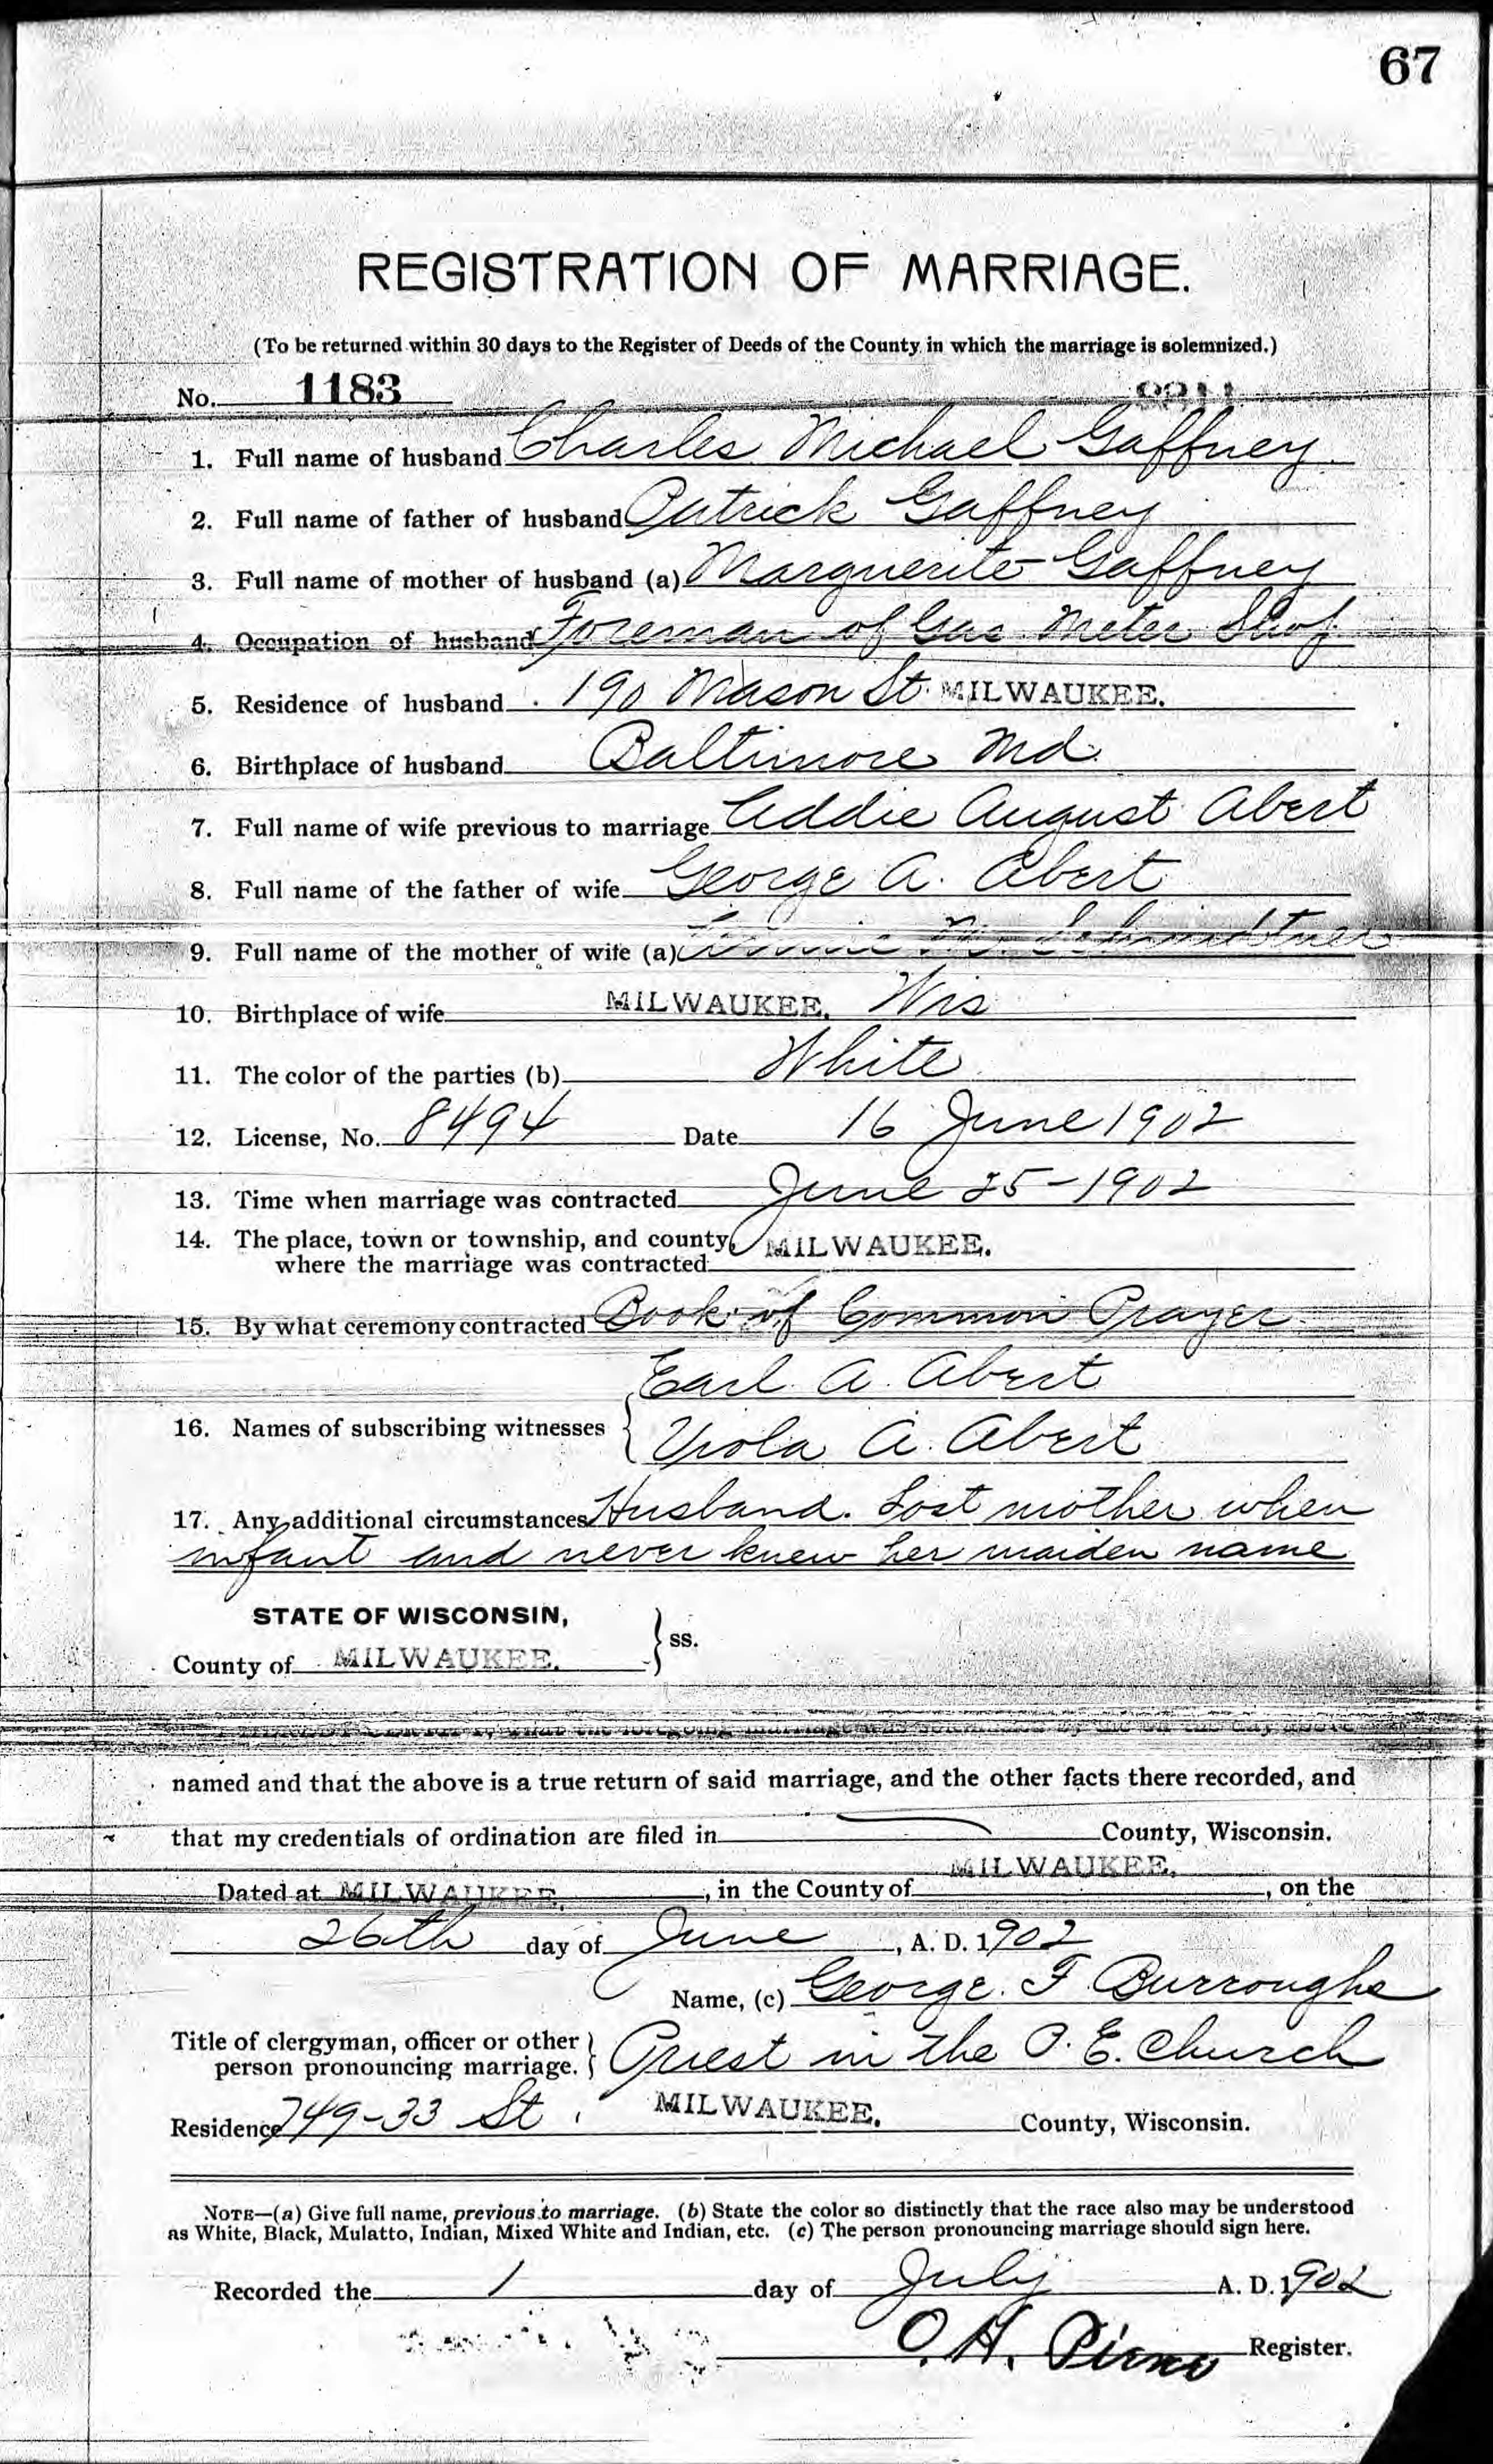 67
REGISTRATION OF MARRIAGE.
(To be returned within 30 days to the Register of Deeds of the County in which the marriage is solemnized.)
No. 1183
1. Full name of husband Charles Michael Gaffney
2. Full name of father of husband Patrick Gaffney
3. Full name of mother of husband (a) Marguerite Gaffney
4. Occupation of husband Foreman of Gas Meter Shop
5. Residence of husband 190 Mason St. MILWAUKEE.
6. Birthplace of husband Baltimore Md.
7. Full name of wife previous to marriage Addie August Abert
8. Full name of the father of wife George A. Abert
9. Full name of the mother of wife (a)
10. Birthplace of wife MILWAUKEE. Wis
11. The color of the parties (b) White
12. License, No. 8494 Date 16 June 1902
13. Time when marriage was contracted June 25-1902
14. The place, town or township, and county, MILWAUKEE.
where the marriage was contracted
15. By what ceremony contracted Book of Common Prayer
Earl A. Abert
16. Names of subscribing witnesses
Viola A. Abert
17. Any additional circumstances Husband. Lost mother when
infant and never knew her maiden name
STATE OF WISCONSIN,
ss.
County of MILWAUKEE.
the foregoing marriage was solemnized by me on the day above
named and that the above is a true return of said marriage, and the other facts there recorded, and
that my credentials of ordination are filed in County, Wisconsin.
Dated at MILWAUKEE. , in the County of MILWAUKEE. , on the
26th day of June , A. D. 1902
Name, (c) George. F Burroughs
Title of clergyman, officer or other
person pronouncing marriage. Priest in the P. E. Church
Residence 749-33 St. MILWAUKEE. County, Wisconsin.
NOTE—(a) Give full name, previous to marriage. (b) State the color so distinctly that the race also may be understood
as White, Black, Mulatto, Indian, Mixed White and Indian, etc. (c) The person pronouncing marriage should sign here.
Recorded the 1 day of July A. D. 1902
O. H. Register.